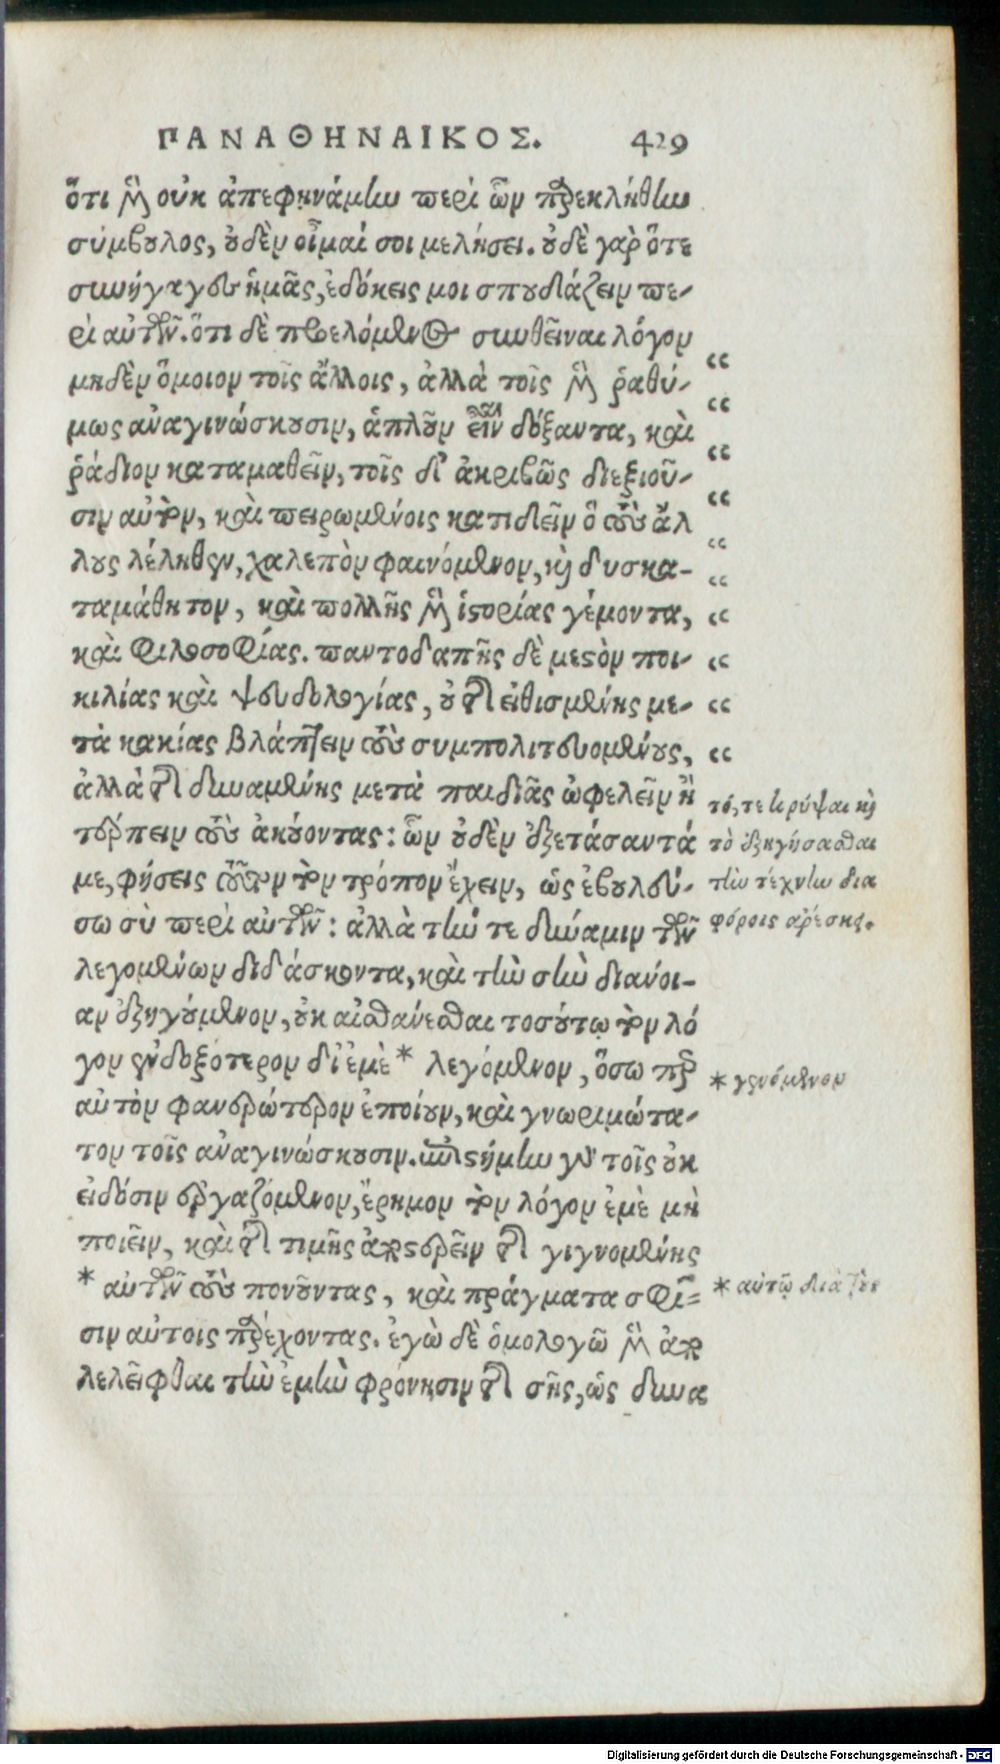 ΠΑΝΑΘΗΝΑΙΚΟΣ. 429
ὅτι μὲν οὐκ ἀπεφηνάμην περὶ ὧν παρεκλήθην
σύμβουλος, οὐδὲν οἶμαί σοι μελήσει. οὐδὲ γὰρ ὅτε
συνήγαγες ἡμᾶς, ἐδόκεις μοι σπουδάζειν πε-
ρὶ αὐτῶν. ὅτι δὲ προελόμενος συνθεῖναι λόγον
μηδὲν ὅμοιον τοῖς ἄλλοις, ἀλλὰ τοῖς μὲν ῥαθύ-
μως ἀναγινώσκουσιν, ἁπλοῦν εἶναι δόξαντα, καὶ
ῥάδιον καταμαθεῖν, τοῖς δ' ἀκριβῶς διεξιοῦ-
σιν αὐτὸν, καὶ πειρωμένοις κατιδεῖν ὃ τοὺς ἄλ
λους λέληθεν, χαλεπὸν φαινόμενον, καὶ δυσκα-
ταμάθητον, καὶ πολλῆς μὲν ἱστορίας γέμοντα,
καὶ φιλοσοφίας. παντοδαπῆς δὲ μεστὸν ποι-
κιλίας καὶ ψευδολογίας, οὐ τῆς εἰθισμένης με-
τὰ κακίας βλάπτειν τοὺς συμπολιτευομένους,
ἀλλὰ τῆς δυναμένης μετὰ παιδιᾶς ὠφελεῖν ἢ
τέρπειν τοὺς ἀκούοντας: ὧν οὐδὲν ἐξετάσαντά
με, φήσεις τοῦτον τὸν τρόπον ἔχειν, ὡς ἐβουλεύ-
σω σὺ περὶ αὐτῶν: ἀλλὰ τήν τε δύναμιν τῶν
λεγομένων διδάσκοντα, καὶ τὴν σὴν διάνοι-
αν ἐξηγούμενον, οὐκ αἰσθάνεσθαι τοσούτῳ τὸν λό
γον ἐνδοξότερον δι' ἐμὲ * λεγόμενον, ὅσω περ
αὐτὸν φανερώτερον ἐποίουν, καὶ γνωριμώτα-
τον τοῖς ἀναγινώσκουσιν. ἐπιστήμην γὰρ τοῖς οὐκ
εἰδόσιν ἐργαζόμενον, ἔρημον τὸν λόγον ἐμὲ μὴ
ποιεῖν, καὶ τῆς τιμῆς ἀποστερεῖν τῆς γιγνομένης
* αὐτῶν τοὺς πονοῦντας, καὶ πράγματα σφί=
σιν αὐτοις παρέχοντας. ἐγὼ δὲ ὁμολογῶ μὲν ἀπο
λελεῖφθαι τὴν ἐμὴν φρόνησιν τῆς σῆς, ὡς δυνα
τό, τε κρύψαι καὶ
τὸ ἐξηγήσασθαι
τὴν τέχνην δια
φόροις ἀρέσκῃ.
* γενόμενον
* αὐτῷ διὰ τοὺς
Digitalisierung gefördert durch die Deutsche Forschungsgemeinschaft - DFG